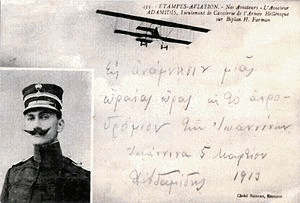 151 - ETAMPES-AVIATION. - Nos Aviateurs - L'Aviateur
ADAMIDIS, Lieutenant de Cavalerie de l'Armée Hellénique
sur Biplan H. Farman
Εἰς ἀνάμνησιν μιᾶς
ὡραίας ὥρας εἰς τὸ ἀερο-
δρόμιον τῶν Ἰωαννίνων
Ἰωάννινα 5 Μαρτίου
1913
Χ. Ἀδαμίδης